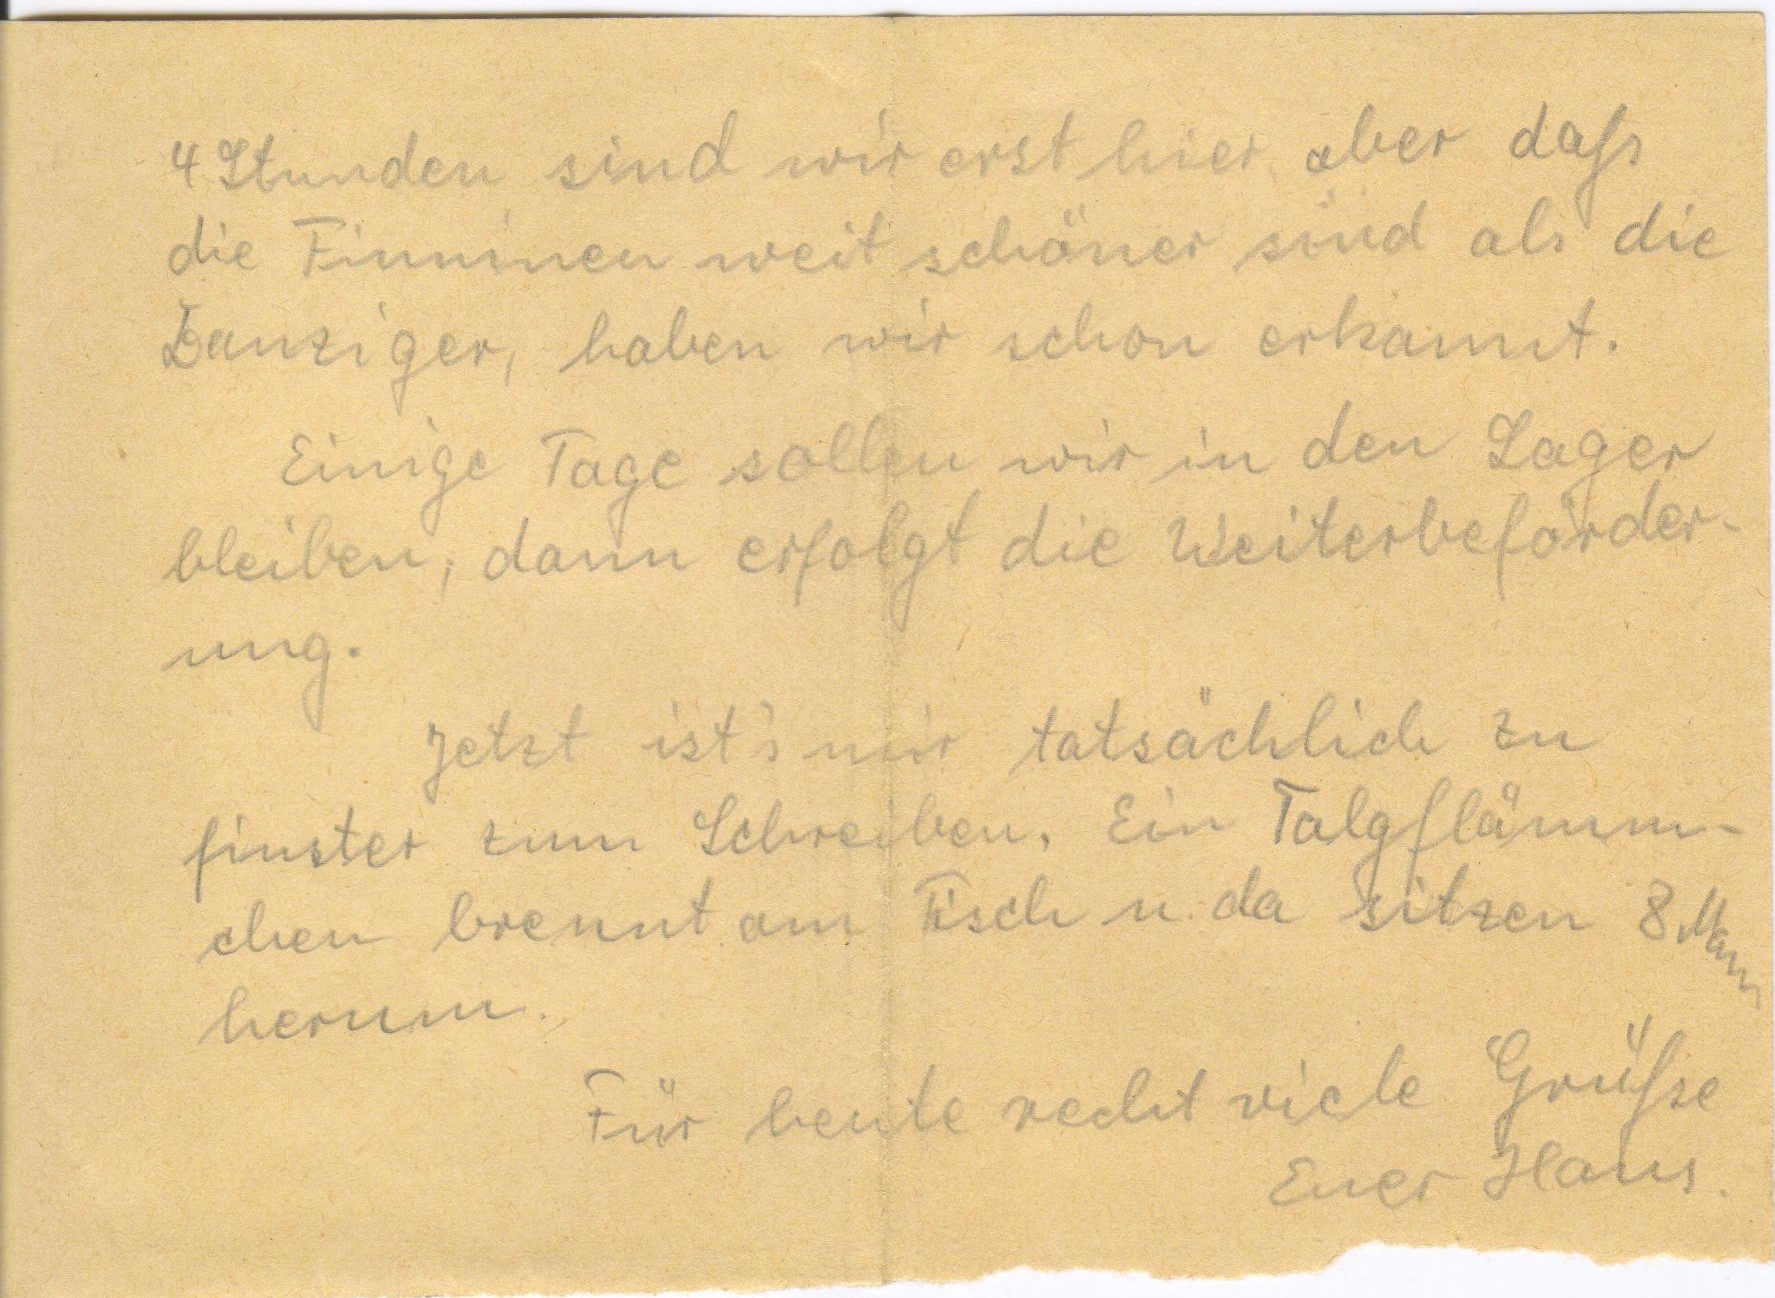 4 Stunden sind wir erst hier aber daß
die Finninen weit schöner sind als die
Danziger, haben wir schon erkannt.
Einige Tage sollen wir in den Lager
bleiben, dann erfolgt die Weiterbeförder-
ung.
Jetzt ist's mir tatsächlich zu
finster zum Schreiben. Ein Talgflämm-
chen brennt am Tisch u. da sitzen 8 Mann
herum.
Für heute recht viele Grüße
Euer Hans.